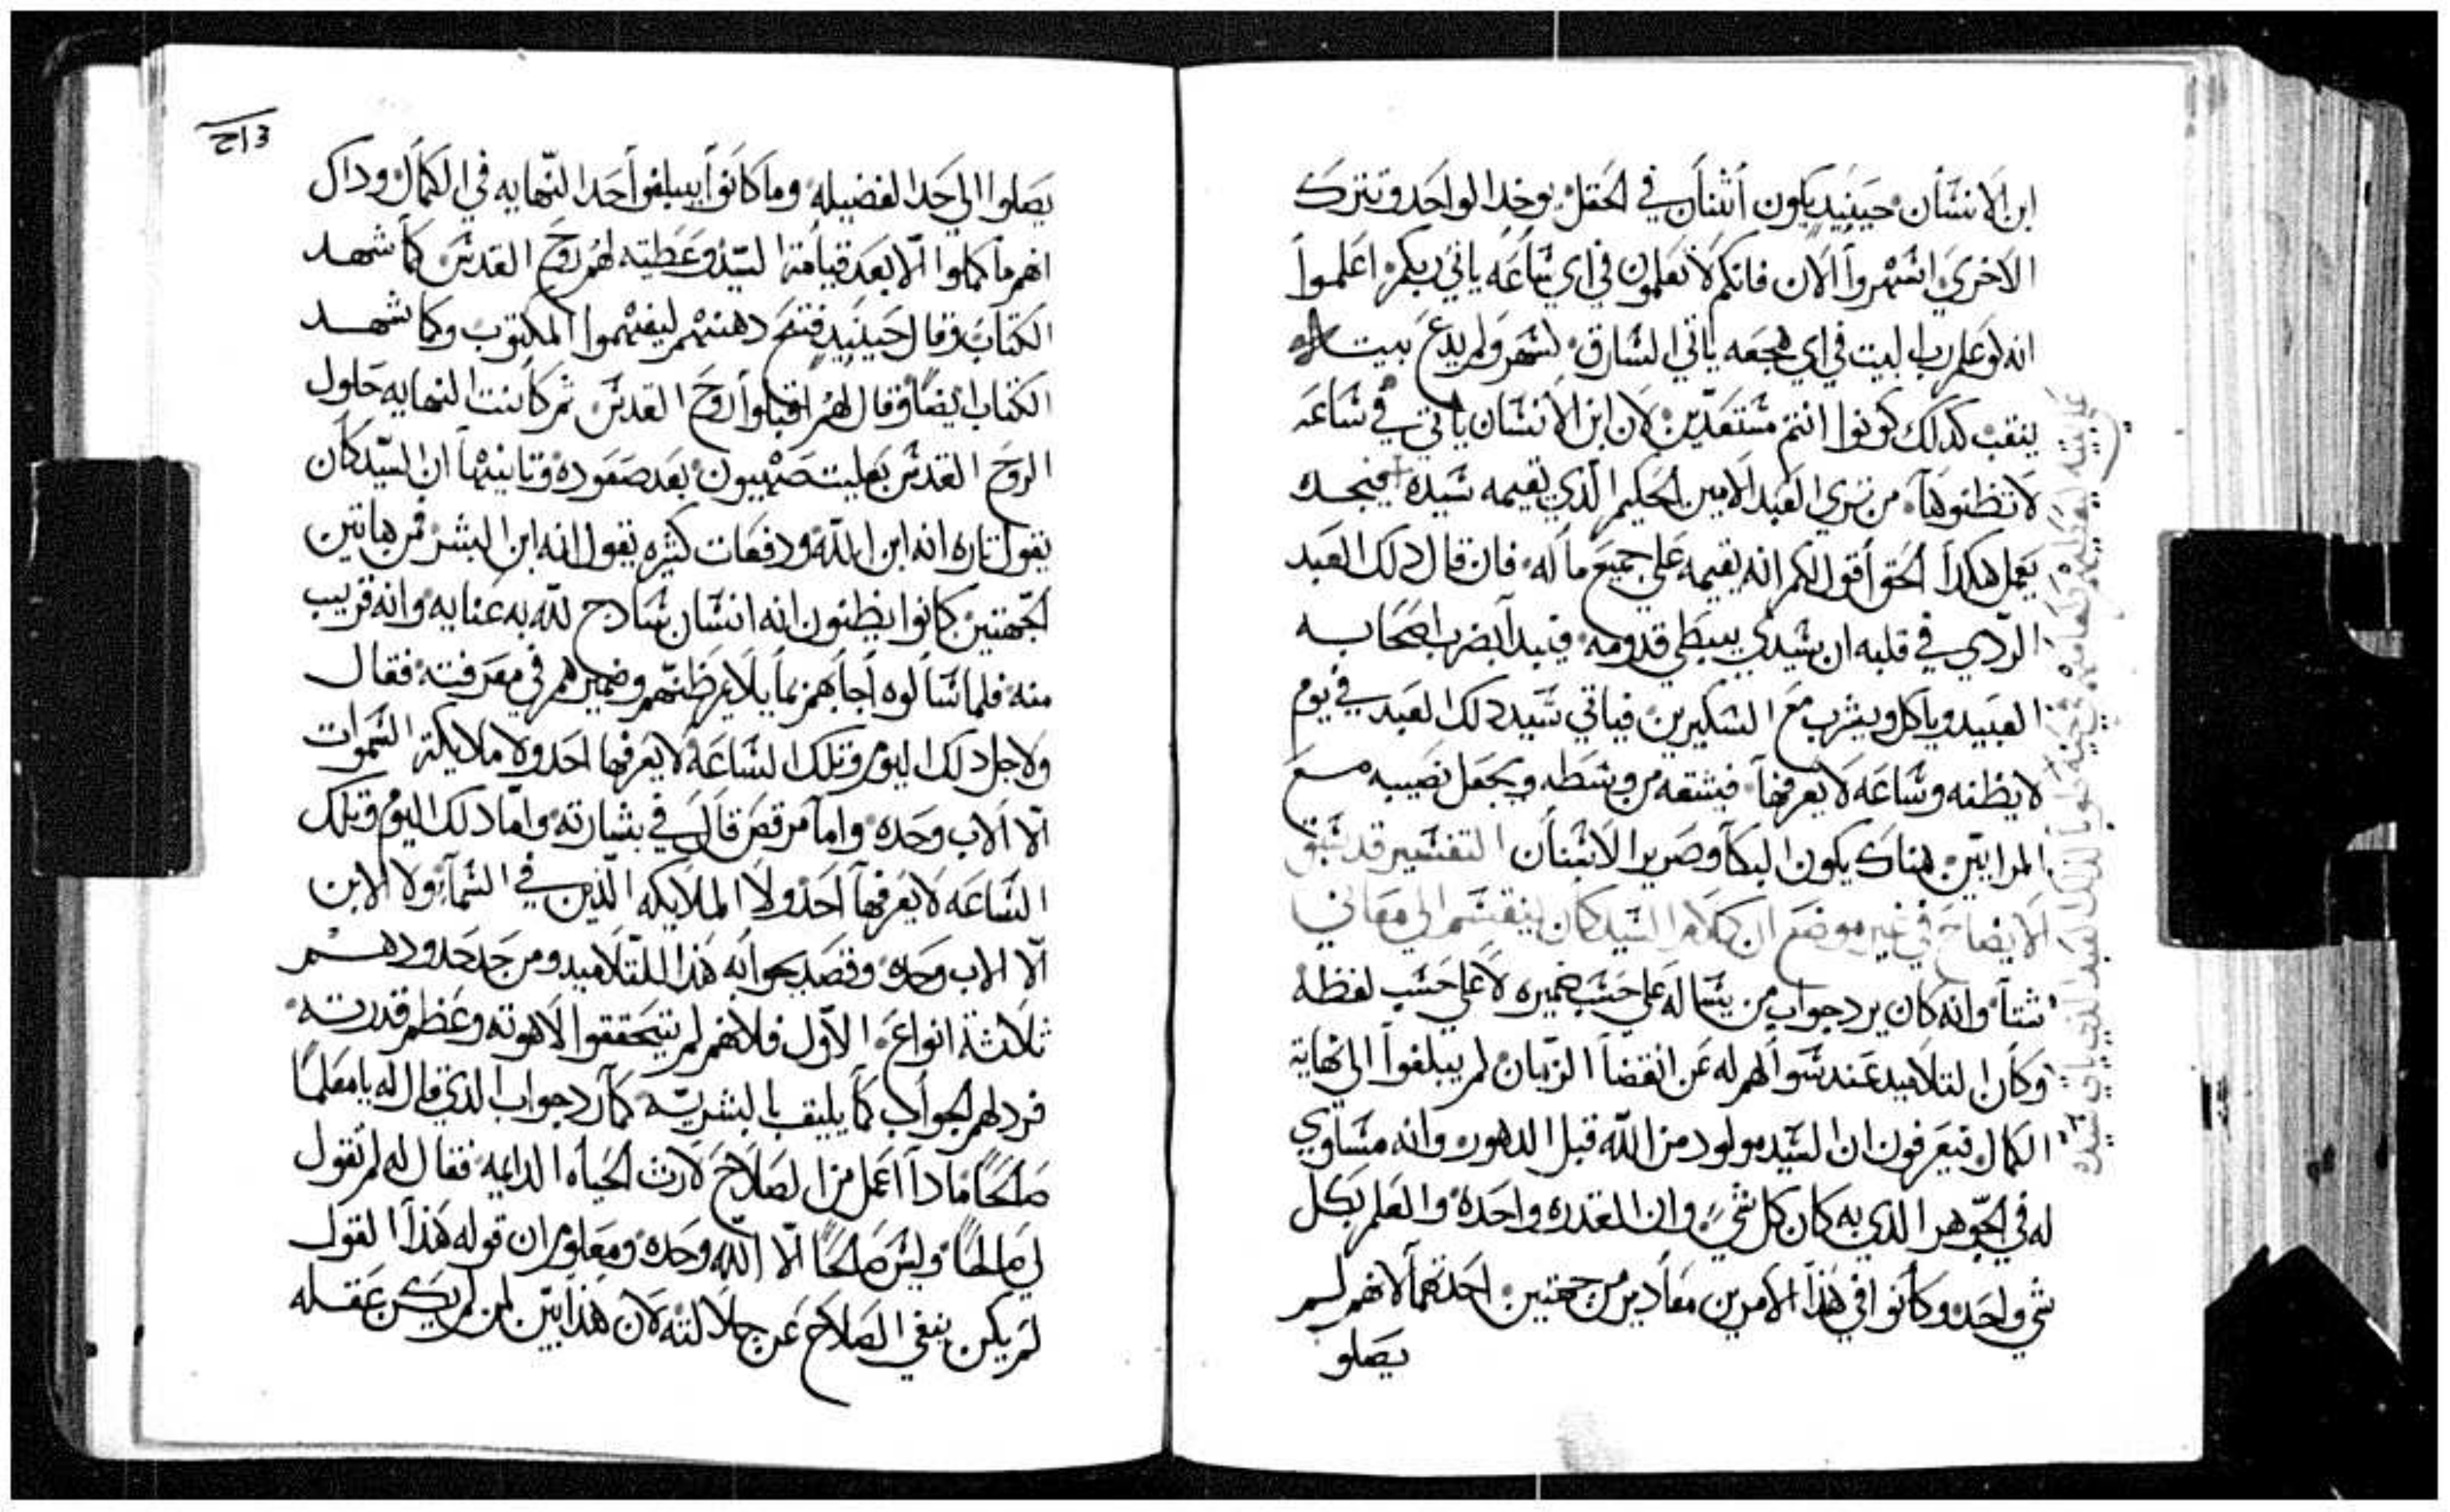 ابن الانسان حينيد يكون اثنان في الحقل يوخد الواحد وتترك
الاخري اسهروا الان فانكم لا تعلمون في اي ساعه ياتي ربكم اعلموا
انه لو علم رب البيت في اي هجعه ياتي السارق لسهر ولم يدع بيته
ينقب كدلك كونوا انتم مستعدين لان ابن الانسان ياتي في ساعه
لا تظنوها من تري العبد الامين الحكيم الدي يقيمه سيده فيجده
يعمل هكدا الحق اقول لكم انه يقيمه علي جميع ماله فان قال دلك العبد
الردي في قلبه ان سيدي يبطي قدومه فيبدا بضرب اصحابه
العبيد وياكل ويشرب مع السكيرين فياتي سيد دلك العبد في يوم
لا يظنه وساعه لا يعرفها فيشقه من وسطه ويجعل نصيبه مع
المرايين هناك يكون البكا وصرير الاسنان التفسير قد سبق
الايضاح في غير موضع ان كلام السيد كان ينقسم الي معاني
شتا وانه كان يرد جواب من يساله علي حسب ضميره لا علي حسب لفظه
وكان التلاميد عند سوالهم له عن انقضا الزمان لم يبلغوا الي نهاية
الكمال فيعرفون ان السيد مولود من الله قبل الدهور وانه مساوي
له في الجوهر الدي به كان كل شي وان القدره واحده والعلم بكل
شي واحد وكانوا في هدا الامرين معادير من جهتين احدهما لانهم لم
يصلو
علي بنيه ليعطيهم طعامهم في حينه طوبا لدلك العبد الدي ياتي سيده
يصلوا الي حد الفضيله وما كانوا يبلغوا حد النهايه في الكمال وداك
انهم ما كملوا الا بعد قيامة السيد وعطيته لهم روح القدس كما شهد
الكتاب وقال حينيد فتح دهنهم ليفهموا المكتوب وكما شهد
الكتاب ايضا وقال لهم اقبلوا روح القدس ثم كانت النهايه حلول
الروح القدس بعليت صهيون بعد صعوده وتانيهما ان السيد كان
يقول تاره انه ابن الله ودفعات كثيره يقول انه ابن البشر فمن هاتين
الجهتين كانوا يظنون انه انسان سادج لله به عنايه وانه قريب
منه فلما سالوه اجابهم بما يلايم ظنهم وضميرهم في معرفته فقال
ولاجل دلك اليوم وتلك الساعه لا يعرفها احد ولا ملايكة السموات
الا الاب وحده واما مرقص قال في بشارته واما دلك اليوم وتلك
الساعه لا يعرفها احد ولا الملايكه الدين في السما ولا الابن
الا الاب وحده وقصد بجوابه هدا للتلاميد ومن حد حدودهم
ثلاثة انواع الاول فلانهم لم يتحققوا لاهوته وعظم قدرته
فرد لهم الجواب كما يليق بالبشرية كما رد جواب الدي قال له يا معلما
صالحا مادا اعمل من الصلاح لارث الحياه الدايمه فقال له لم تقول
لي صالحا وليس صالحا الا الله وحده ومعلوم ان قوله هدا القول
لم يكن ينفي الصلاح عن جلالته لان هدا بين لمن لم يكن عقله